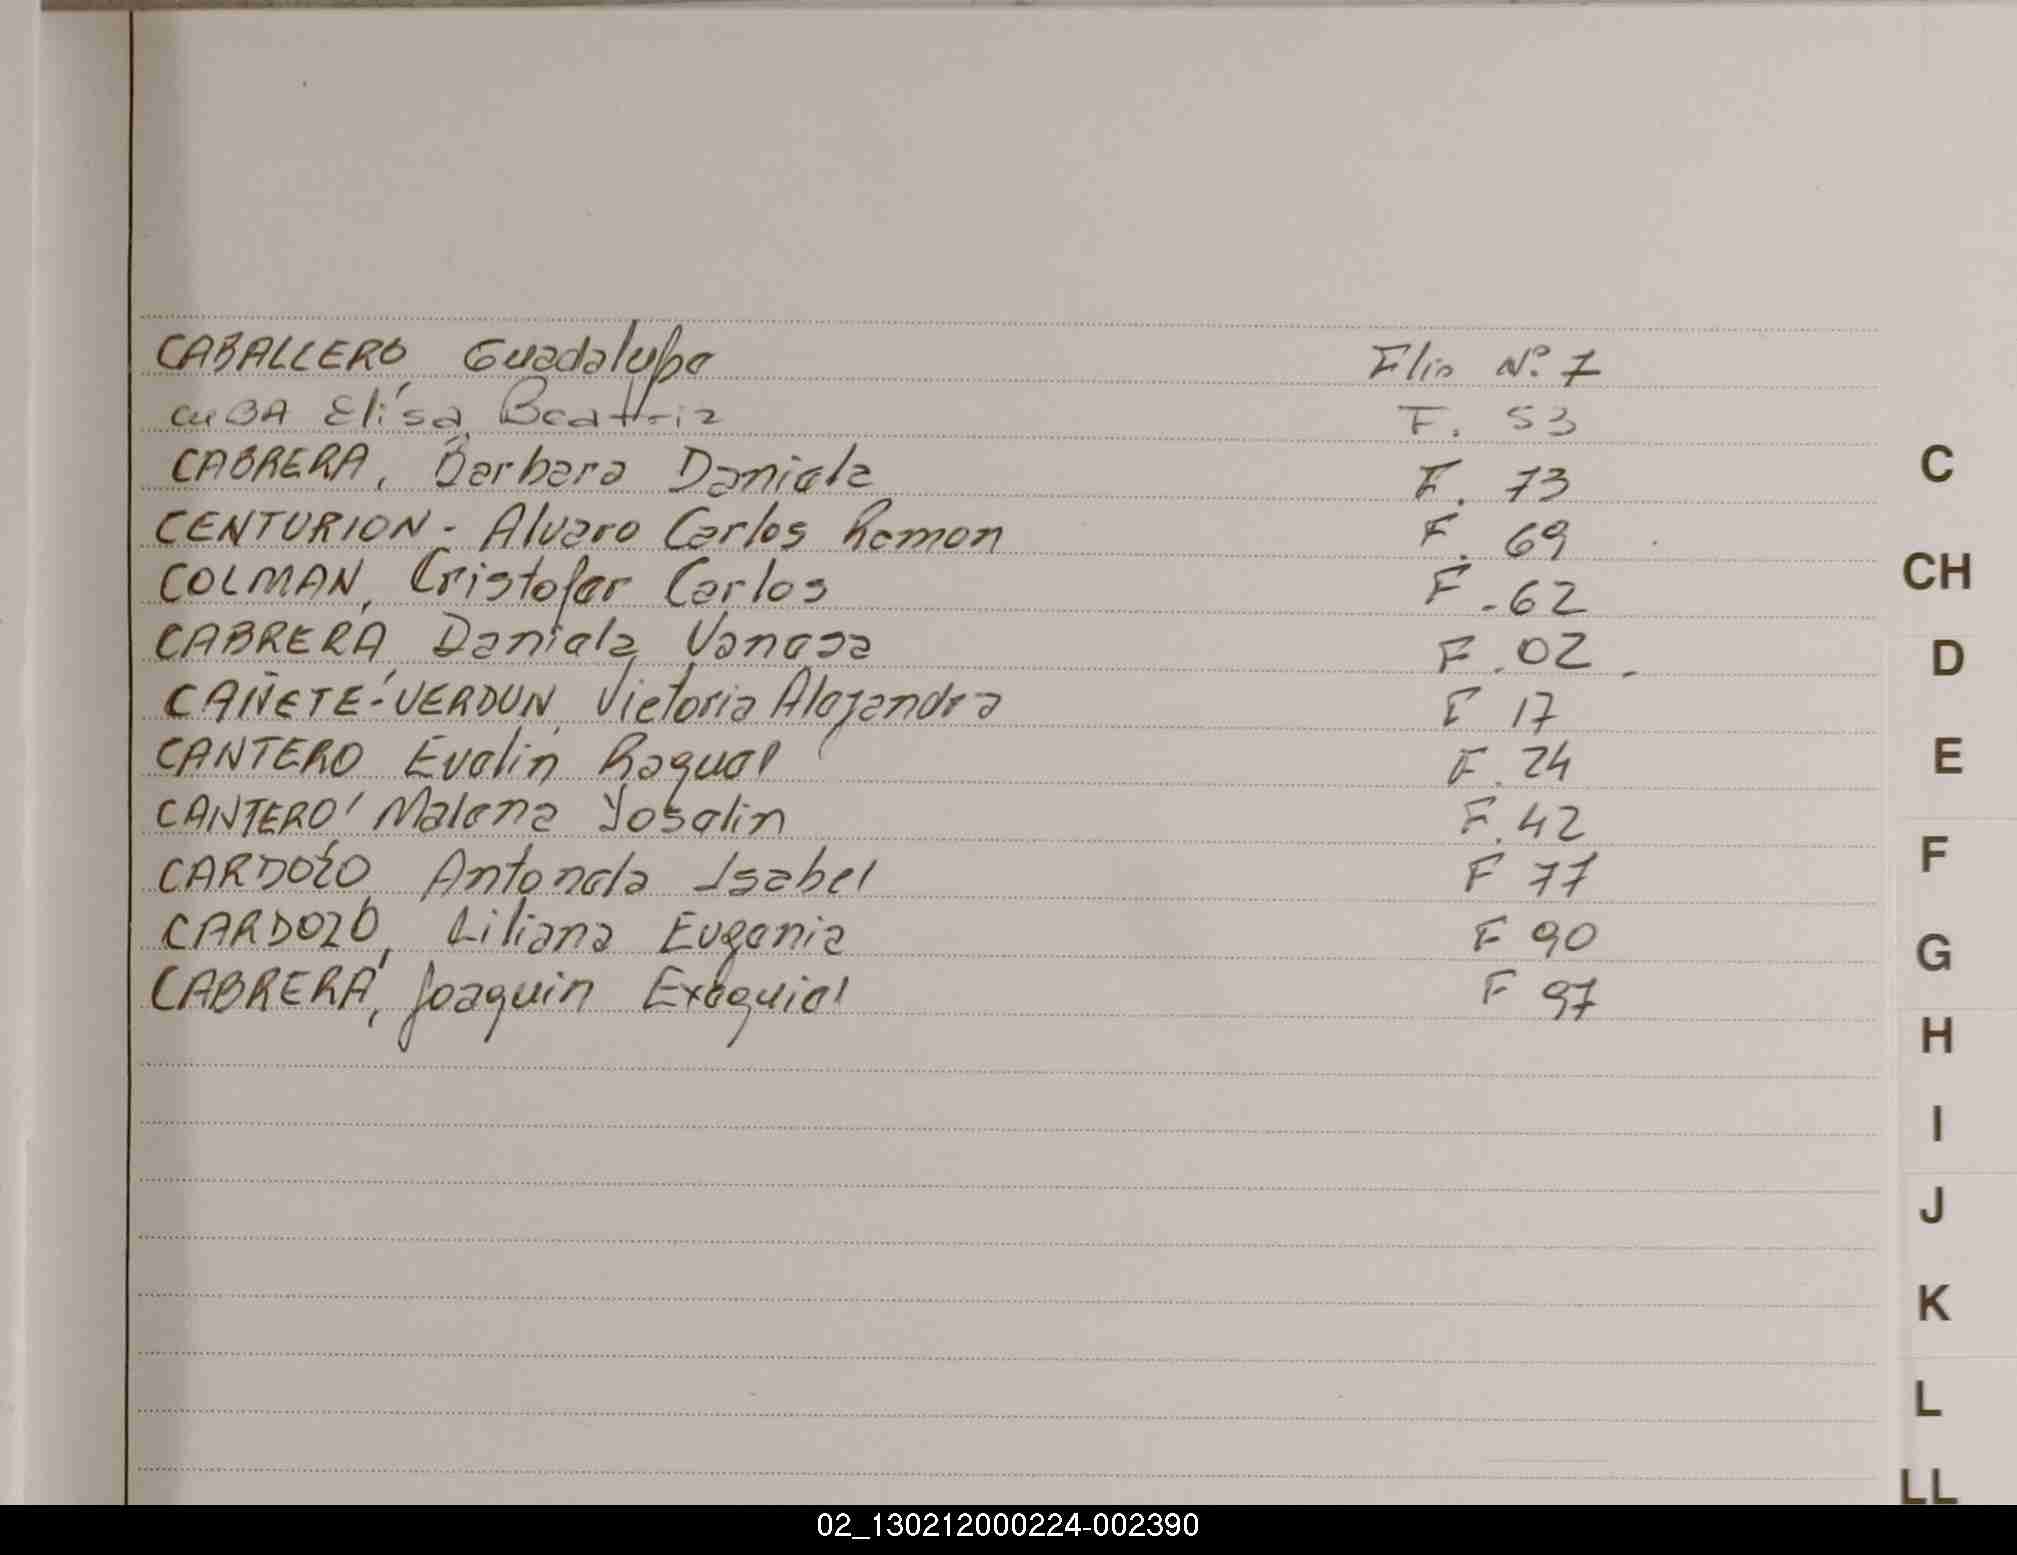 CABALLERO, Guadalupe Flio Nº 7
CUBA Elisa Beatriz F. 53
CABRERA, Barbara Daniela F. 73
CENTURION - Alvaro Carlos Ramon F. 69
COLMAN, Cristofer Carlos F. 62
CABRERA Daniela Vanesa F. 02
CAÑETE-VERDUN, Victoria Alejandra F 17
CANTERO Evelin Raquel F. 24
CANTERO Malena Yoselin F. 42
CARDOZO Antonela Isabel F 77
CARDOZO, Liliana Eugenia F 90
CABRERA, Joaquin Exequiel F 97
C
CH
D
E
F
G
H
I
J
K
L
LL
02_130212000224-002390